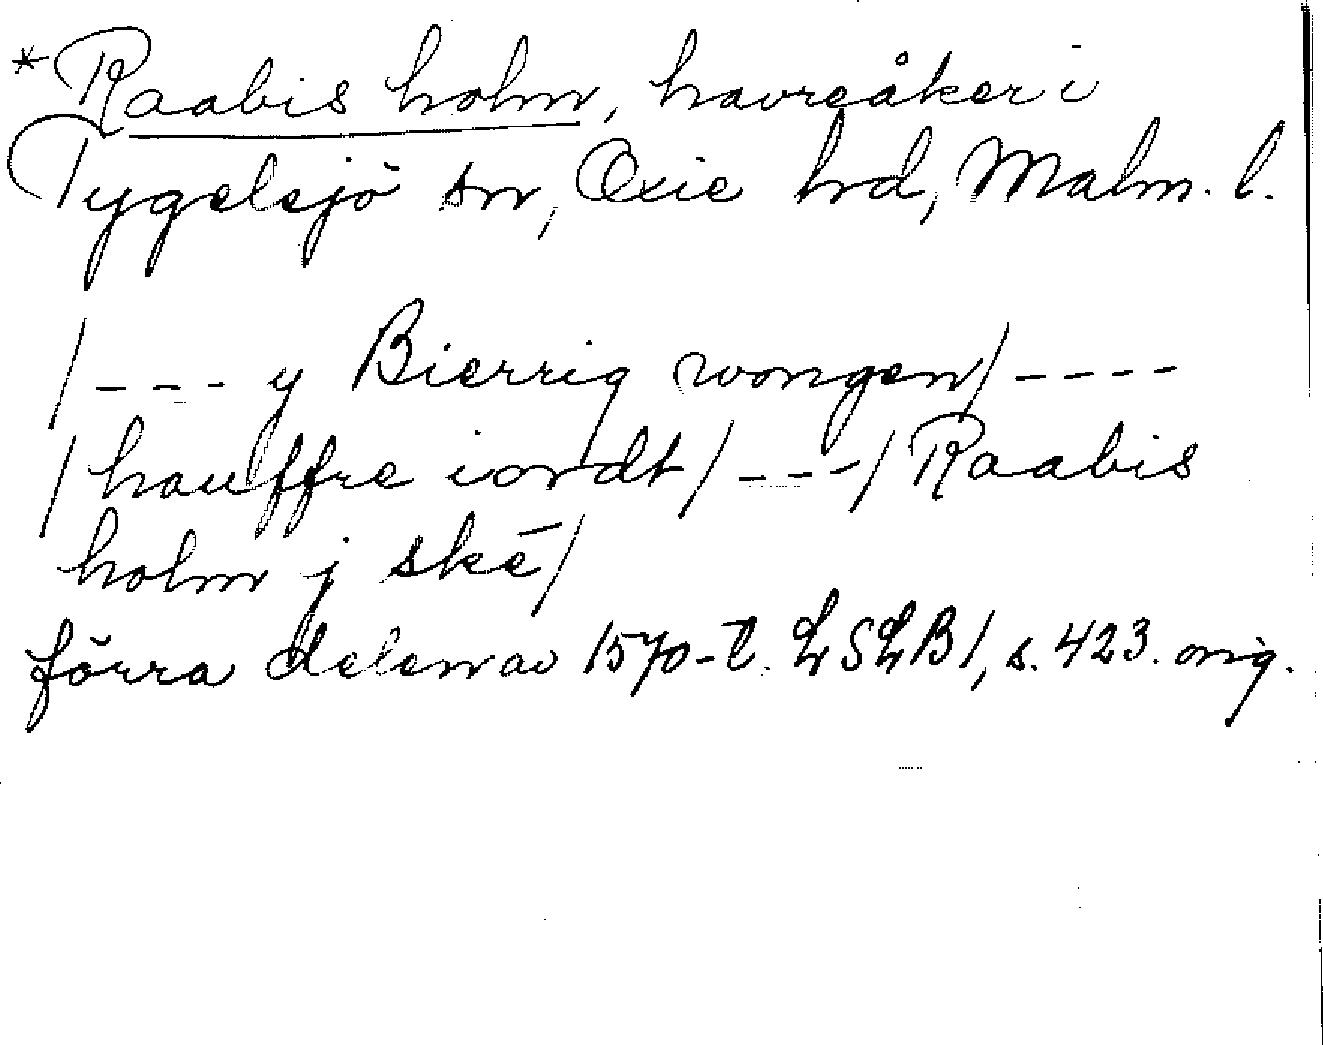 *Raabis holm, havreåker i
Tygelsjö sn, Oxie hd, Malm. l.
/--- y Bierrig wongen/----
/hauffre iordt/---/Raabis
holm j skē/
förra delen av 1570-t. LSLB1, s. 423. orig.